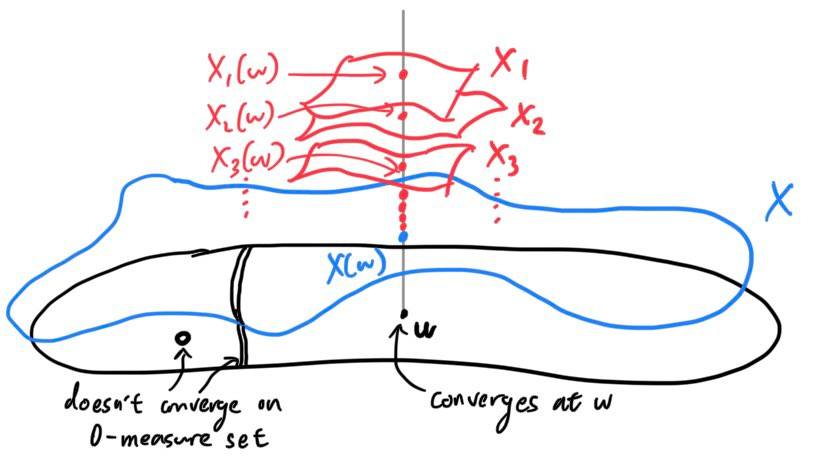 X₁(w)
X₁
X₂(w)
X₂
X₃(w)
X₃
X
X(w)
w
doesn't converge on
0-measure set
converges at w